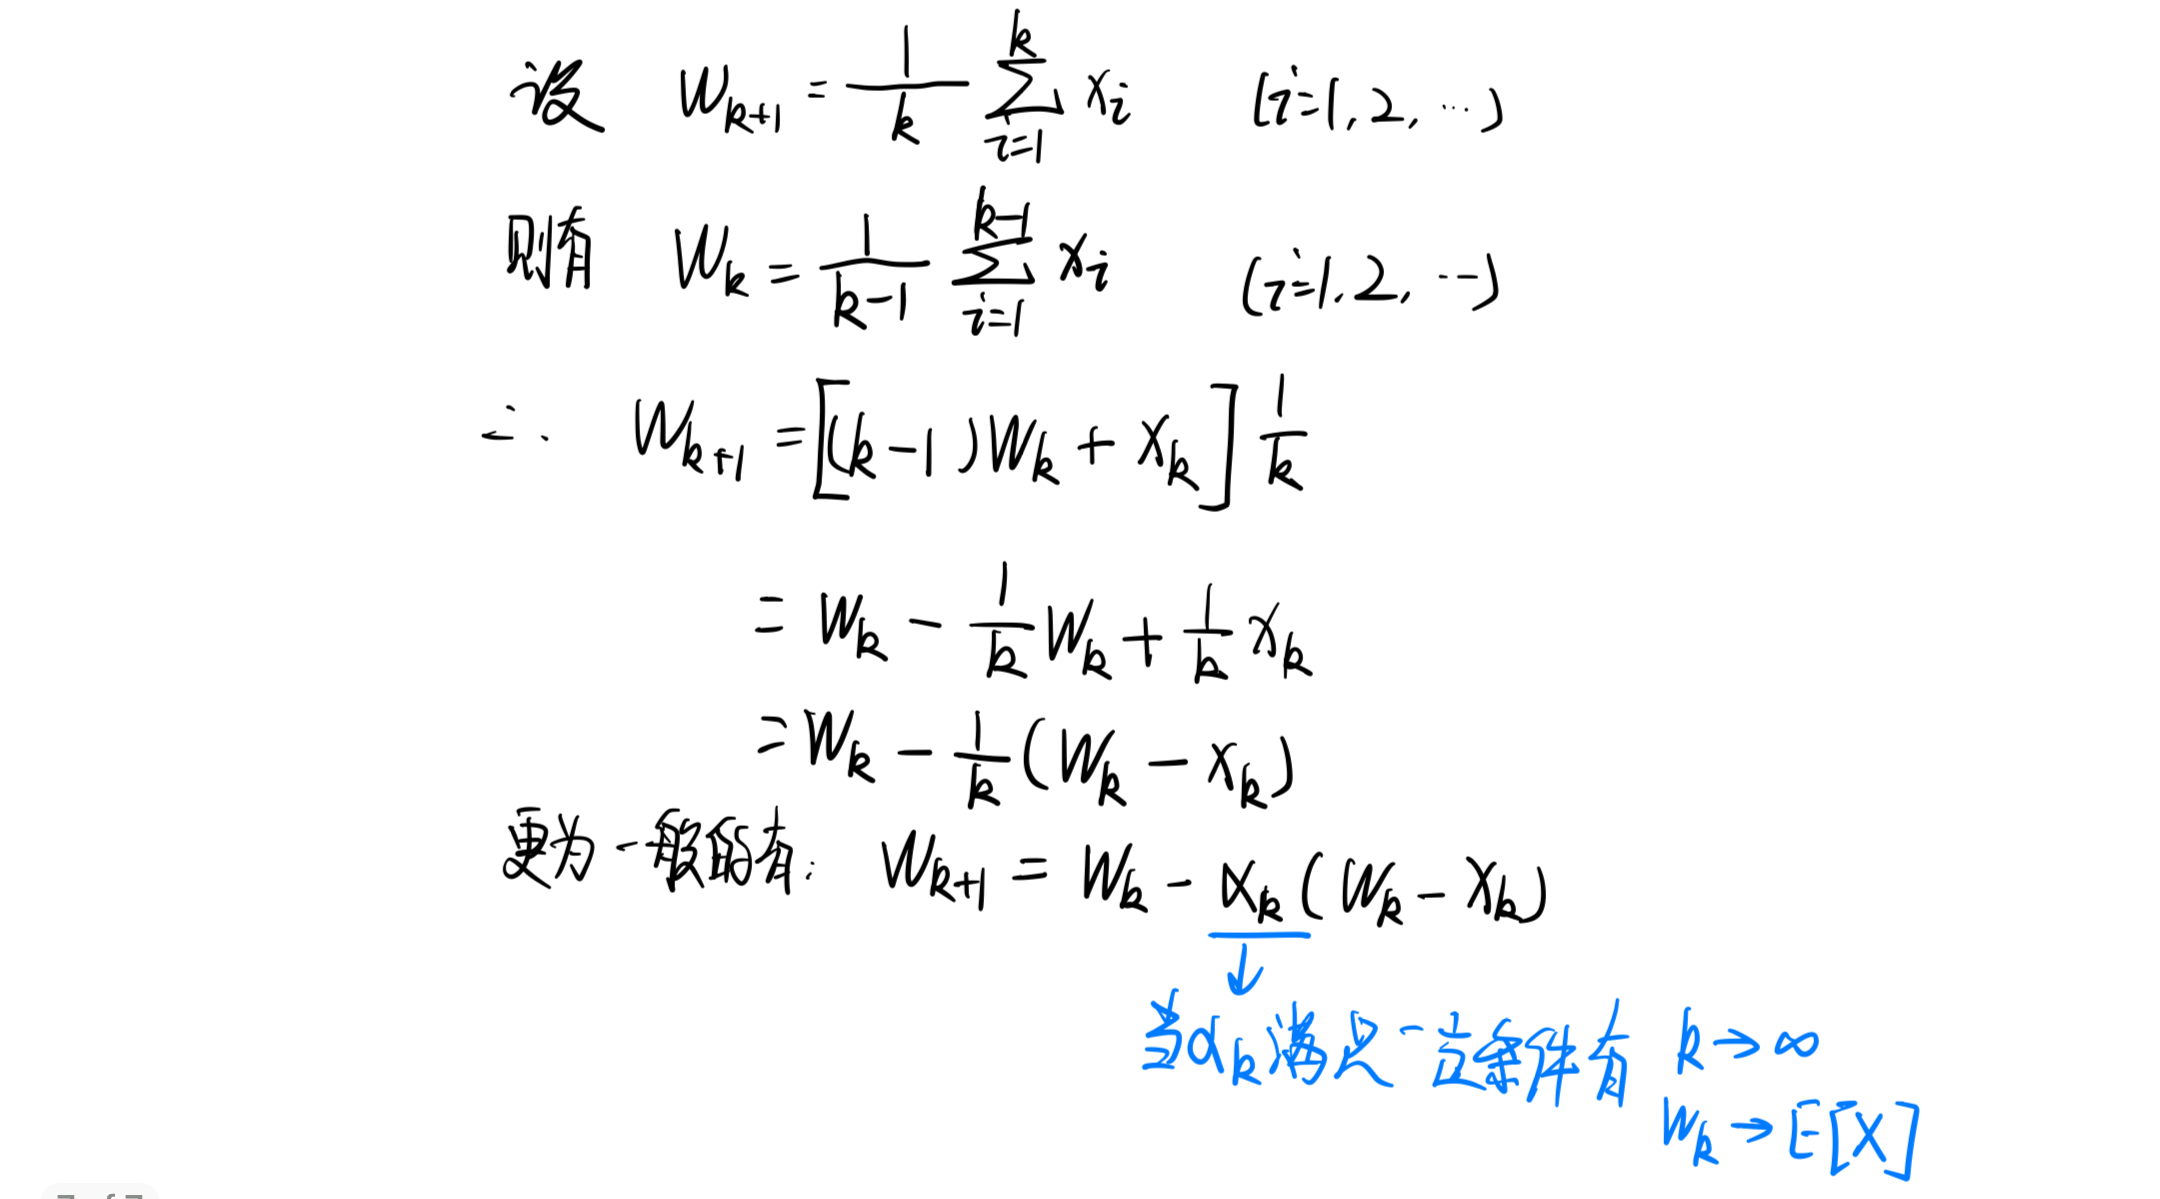 设 W_{k+1} = \frac{1}{k} \sum_{i=1}^{k} x_i (i=1,2,…)
则有 W_k = \frac{1}{k-1} \sum_{i=1}^{k-1} x_i (i=1,2,…)
∴ W_{k+1} = [(k-1)W_k + x_k] \frac{1}{k}
= W_k - \frac{1}{k} W_k + \frac{1}{k} x_k
= W_k - \frac{1}{k} (W_k - x_k)
更为一般的有: W_{k+1} = W_k - α_k (W_k - x_k)
↓
当α_k满足一定条件有 k → ∞
W_k → E[X]